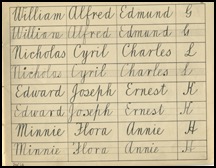 William Alfred Edmund G
William Alfred Edmund G
Nicholas Cyril Charles L
Nicholas Cyril Charles L
Edward Joseph Ernest K
Edward Joseph Ernest K
Minnie Flora Annie H
Minnie Flora Annie H